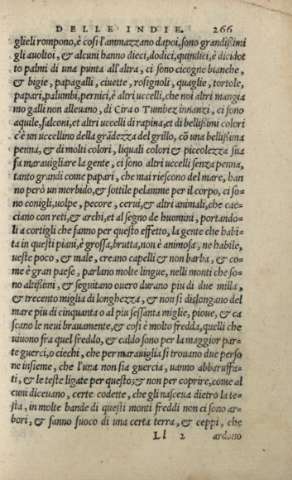 DELLE INDIE. 266
glieli rompono, è cosi l'ammazzano dapoi, sono grandissimi
gli auoltoi, & alcuni hanno dieci, dodici, quindici, è dicidot
to palmi di una punta all'altra, ci sono cicogne bianche,
& bigie, papagalli, ciuette, rosignoli, quaglie, tortole,
papari, palumbi, pernici, è altri uccelli, che noi altri mangia
mo galli non alleuano, di Cira o Tumbez innanzi, ci sono
aquile, falconi, et altri uccelli di rapina, et di bellissimi colori
c'è un uccellino della grãdezza del grillo, cõ una bellissima
penna, & di molti colori, liquali colori & piccolezza sua
fa marauigliare la gente, ci sono altri uccelli senza penna,
tanto grandi come papari, che mai riescono del mare, han
no però un morbido, & sottile pelamme per il corpo, ci so-
no conigli, uolpe, pecore, cerui, & altri animali, che cac-
ciano con reti, & archi, et al segno de huomini, portando-
li a cortigli che fanno per questo effetto, la gente che habi-
ta in questi piani, è grossa, brutta, non è animosa, ne habile,
ueste poco, & male, creano capelli & non barba, & co-
me è gran paese, parlano molte lingue, nelli monti che so-
no altissimi, & seguitano ouero durano piu di due milla,
& trecento miglia di longhezza, & non si dislongano del
mare piu di cinquanta o al piu sessanta miglie, pioue, & ca
scano le neui brauamente, & cosi è molto fredda, quelli che
uiuono fra quel freddo, & caldo sono per la maggior par-
te guerci, o ciechi, che per marauiglia si trouano due perso
ne insieme, che l'una non sia guercia, uanno abbaruffa-
ti, & le teste ligate per questo; & non per coprire, come al
cuni diceuano, certe codette, che gli nasceua dietro la te-
sta, in molte bande di questi monti freddi non ci sono ar-
bori, & fanno fuoco di una certa terra, & ceppi, che
Ll 2 ardono